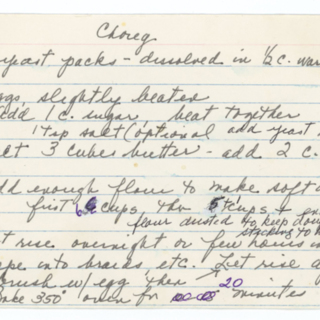 Choreg
yeast packs - dissolved in 1/2 c. war
eggs, slightly beaten
add 1 c. sugar, beat together
1 tsp salt (optional and yeast
elt 3 cubes butter - add 2 c.
dd enough flour to make soft
first 6 cups, then 5 cups +
flour dusted to keep dow
t rise overnight or few hours in
ape into braids etc. Let rise a
Brush w/ egg then
ake 350° oven for 20 minutes